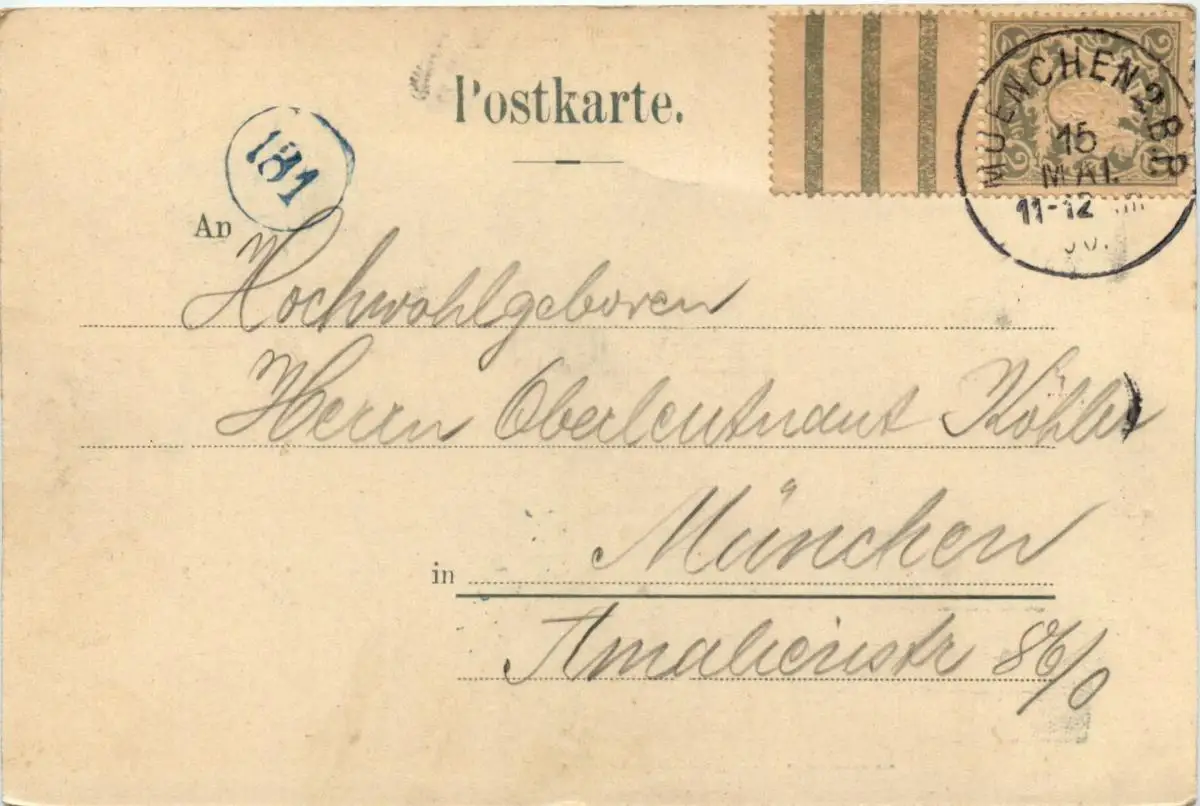 Postkarte.
2 2
2 2
MUENCHEN 2 B.P.
15
MAI.
11-12
181
An
Hochwohlgeboren
Herrn Oberleutnant Köhler
München
in
Amalienstr 86/0